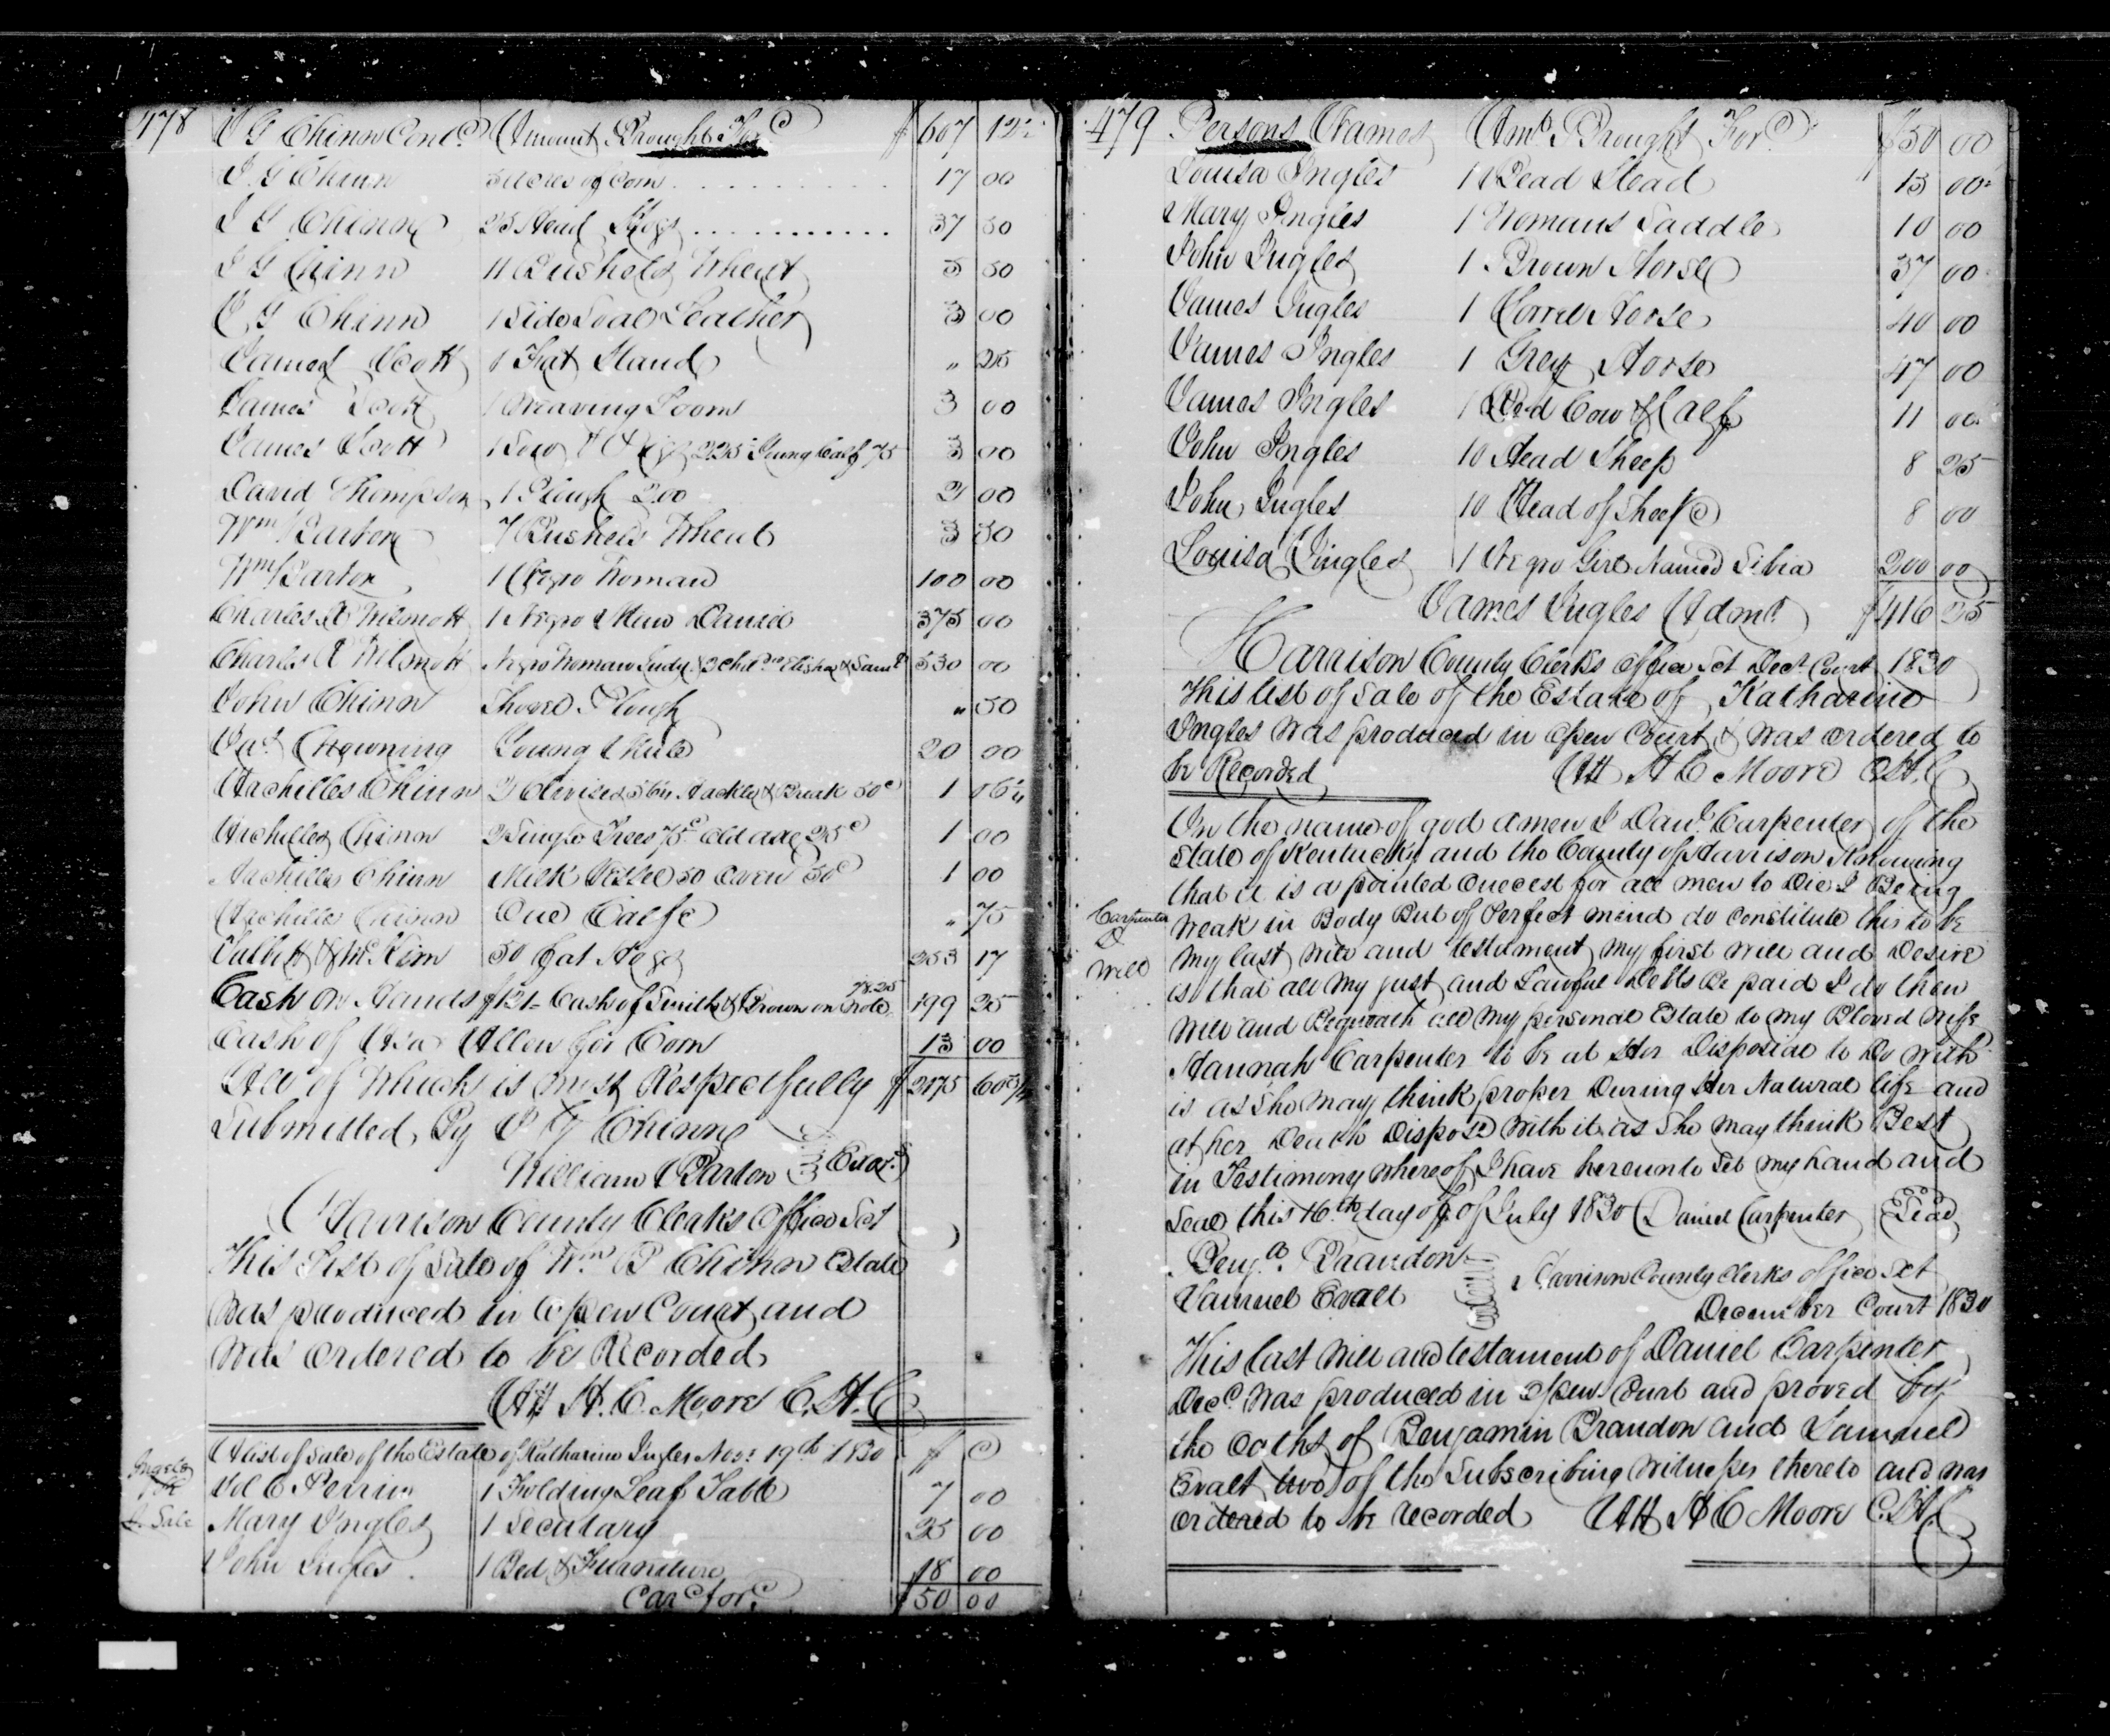 478 J G Chinn Cont.d Amount Brought For.d $ 607 12½
J. G Chinn 5 Acres of Corn 17 00
J G Chinn 25 Head Hogs 37 50
J G Chinn 11 Bushels Wheat 5 50
J. G Chinn 1 Side Soal Leather 3 00
James Scott 1 Fat Stand " 25
James Scott 1 Weaving Loom 3 00
James Scott 1 Sow & Pigs 2.25 Young Calf 75 3 00
David Thompson 1 Plough 200 2 00
Wm Barton 7 Bushels Wheat 3 50
Wm Barton 1 Negro Woman 100 00
Charles A Wilmott 1 Negro Man David 375 00
Charles A Wilmott Negro Woman Judy & 2 Chil.dn Elisha & Saml 530 00
John Chinn Shovel Plough " 50
Jas Chowning Young Mule 20 00
Archilles Chinn 2 Clevises 56¼ Hackle & Break 50c 1 06¼
Archilles Chinn 2 Single Trees 75c Old axe 25c 1 00
Archilles Chinn Milk Vessel 50 Oven 50c 1 00
Archilles Chinn One Calfe " 75
Talbott & McKim 50 fat Hogs 253 17
Cash on Hands $121 - Cash of Smith & Brown on Note 78.25 199 25
Cash of Asa Allen for Corn 13 00
All of Which is most Respectfully $ 2175 60¾
Submitted, By J G Chinn
William Barton Exors
Harrison County Clerks Office Sct
This List of Sale of Wm B Chinn Estate
Was produced in Open Court and
Was Ordered to be Recorded
Att H. C. Moore C. H. C
A list of Sale of the Estate of Katharine Ingles Nov: 19th 1830 $ C
Ingels
Sale
1 Folding Leaf Table 7 00
Mary Ingles 1 Secutary 25 00
John Ingles 1 Bed & Furniture 18 00
Card for.d $50 00
479 Persons Names Amt Brought For.d $50 00
Louisa Ingles 1 Bead Stead 15 00
Mary Ingles 1 Womans Saddle 10 00
John Ingles 1 Brown Horse 37 00
James Ingles 1 Sorrel Horse 40 00
James Ingles 1 Grey Horse 47 00
James Ingles 1 Red Cow & Calf 11 00
John Ingles 10 Head Sheep 8 25
John Ingles 10 Head of Sheep 8 00
Louisa Ingles 1 Negro Girl Named Sibia 200 00
James Ingles Admr $416 25
Harrison County Clerks Office Sct Dec.r Court 1830
This list of sale of the Estate of Katharine
Ingles Was produced in Open Court & was ordered to
be Recorded Att H C Moore C.H.C
In the name of god amen I Danl Carpenter of the
State of Kentucky and the County of Harrison Knowing
that it is apointed Onecest for all men to Die I Being
Carpenter
D
Will
Weak in Body But of Perfect mind do Constitute this to be
My last Will and testament My first Will and Desire
is that all My just and Lawful Debts Be paid I do then
Will and Bequeath all My personal Estate to my Bloved Wife
Hannah Carpenter to be at Her Disposal to Do With
is as She may think proper During Her Natural life and
at her Death Dispose With it as She may think Best
in Testimony Whereof I have hereunto Set my hand and
Seal this 16th day of of July 1830 Daniel Carpenter Seal
Benj.a Brandon
Samuel Evalt
Harrison County Clerks office Sct
December Court 1830
This last Will and testament of Daniel Carpenter
Decd Was produced in Open Court and proved by
the Oaths of Benjamin Brandon and Samuel
Evalt two of the Subscribing Witnesses thereto and was
ordered to be recorded Att H C Moore C.H.C